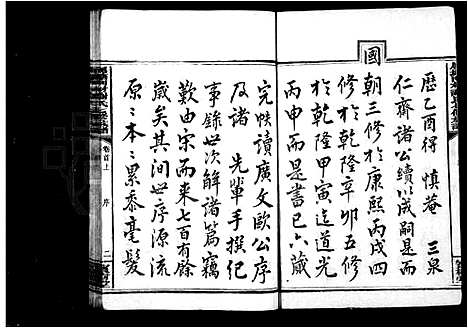 曆乙酉得　慎菴　三泉
仁齋諸公續以成嗣是而
國
朝三修於康熙丙戌四
修於乾隆辛卯五修
於乾隆甲寅迄道光
丙申而是書已六葳
完帙讀廣文歐公序
及諸　先輩手撰紀
事錄世次解諸篇竊
歎由宋而來七百有餘
歲矣其間世序源流
原〻本〻累黍毫髮
卷首上　序　二